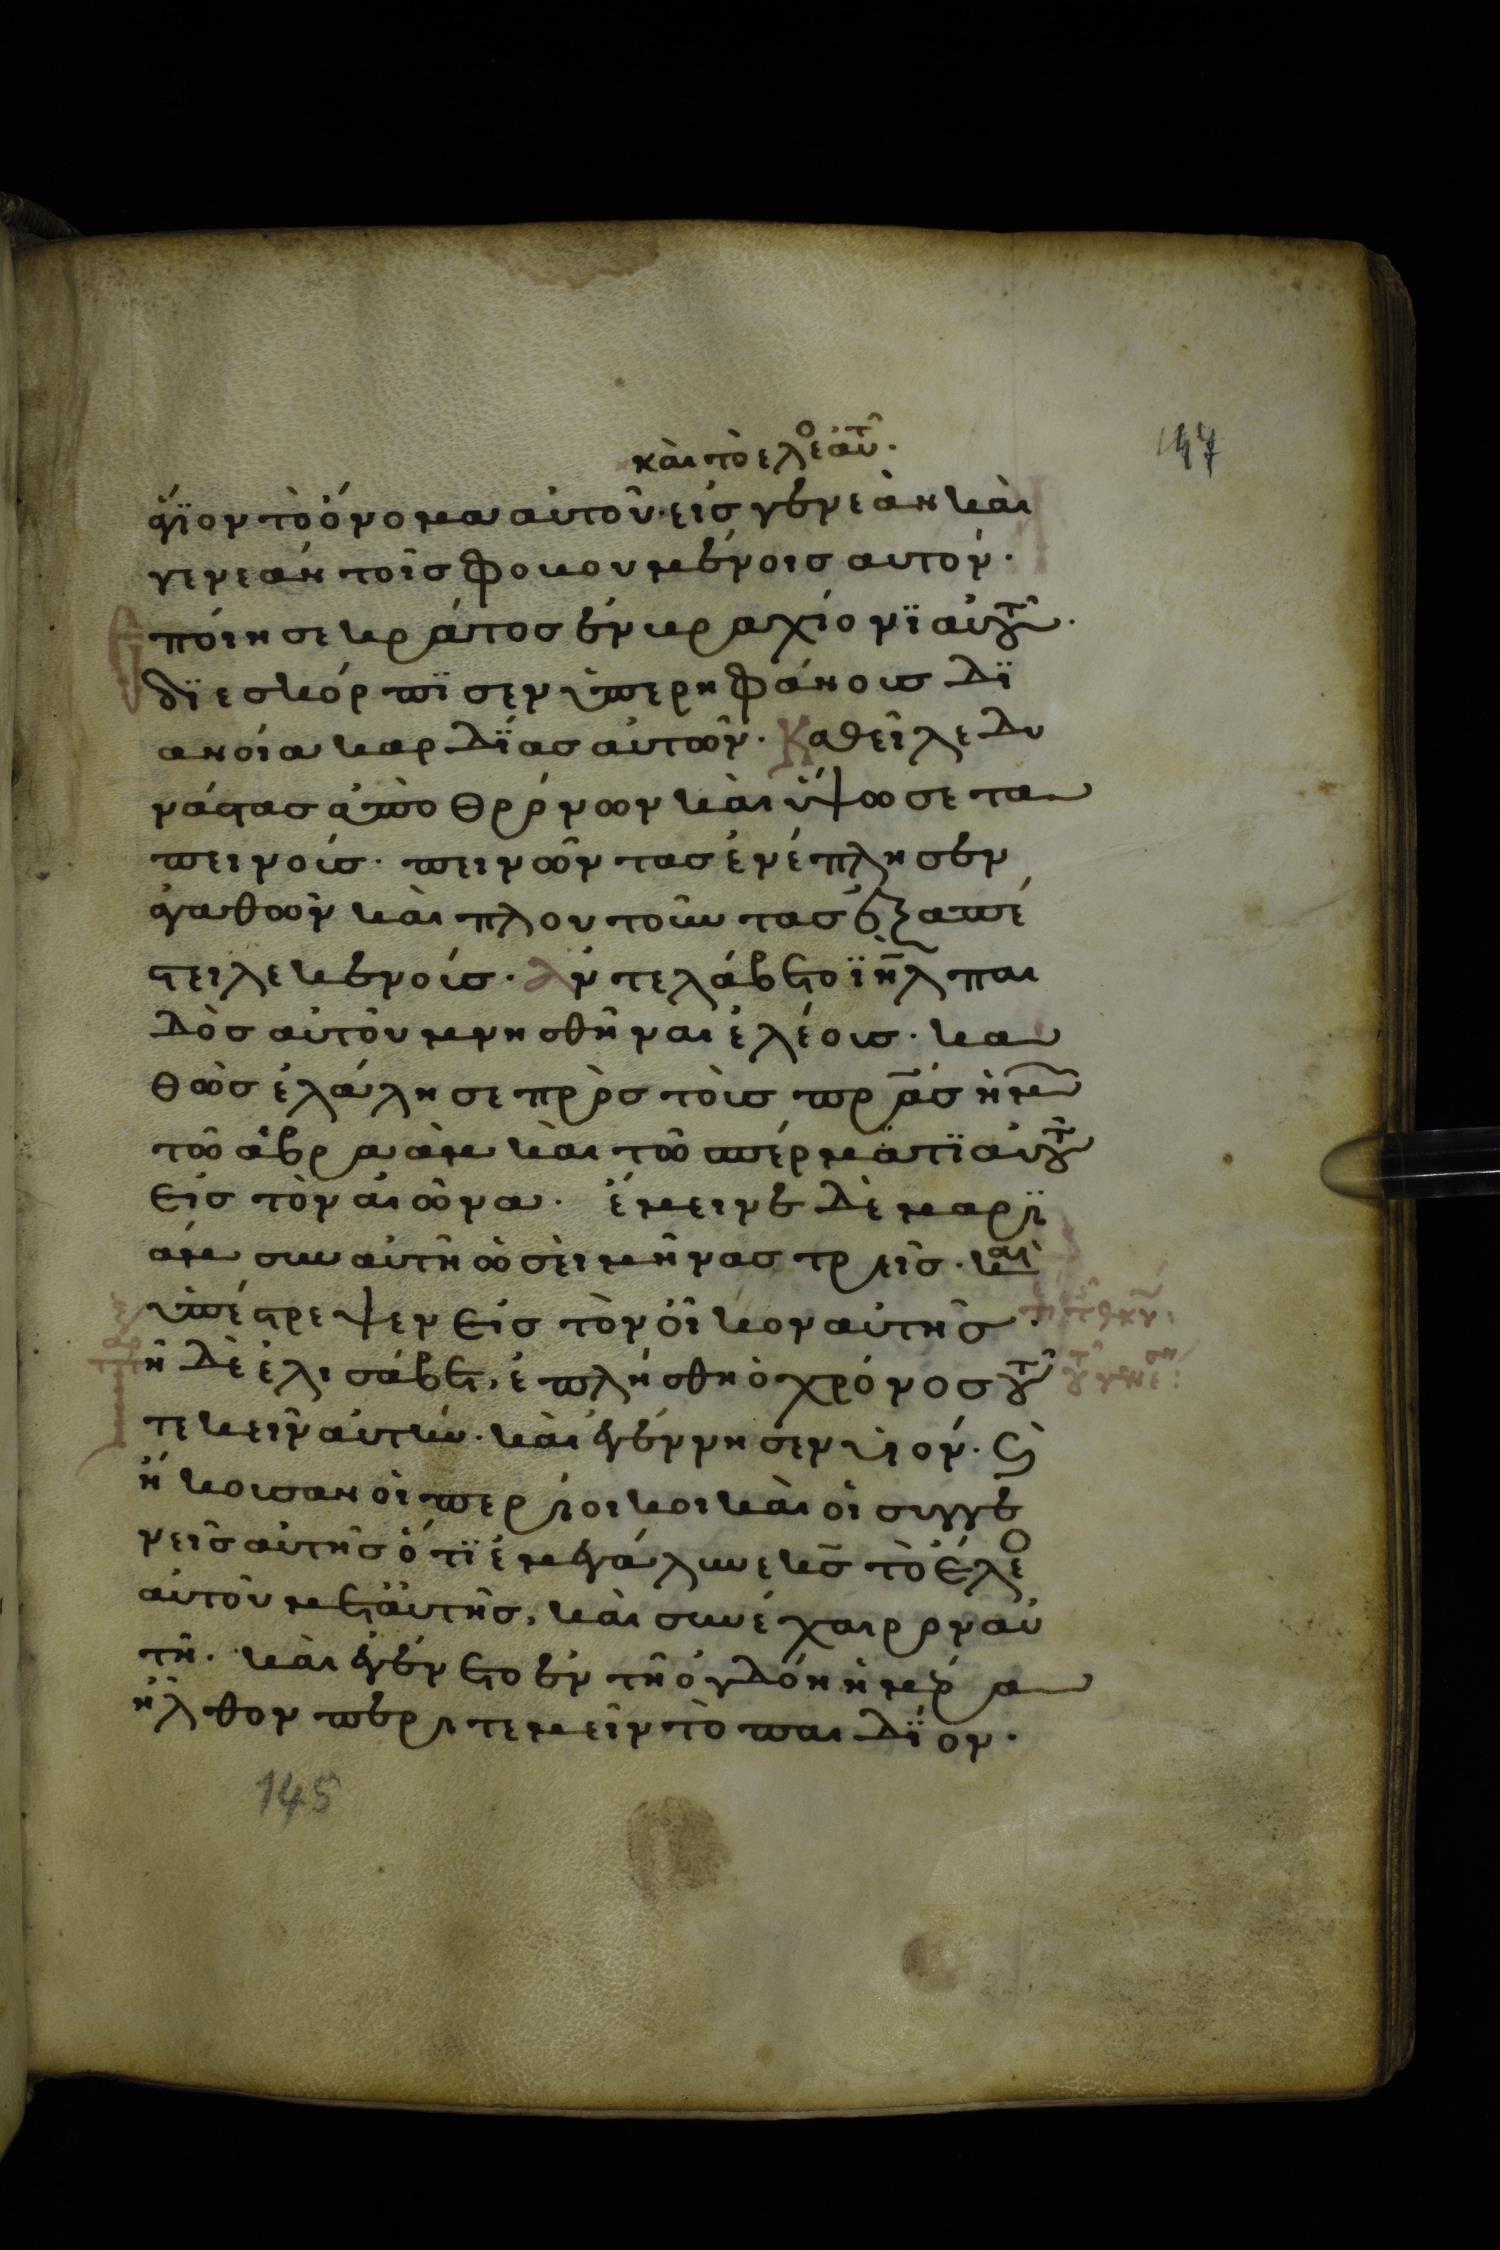 καὶ τὸ ελεο αὐτ̂.
147
ἅγϊον τὸ ὄνομα αὐτοῦ· εἰσ γενεὰν καὶ
γενεάν τοῖσ φοβουμένοισ αυτόν·
ποίησε κράτοσ ἐν βραχίονϊ αὑτοῦ·
δϊεσκόρπϊσεν ὑπερηφάνουσ δϊ
ανοία καρδΐασ αὐτῶν· Καθεῖλε δυ
νάστασ ἀπὸ θρόνων καὶ ὕψωσε τα
πεινούσ· πεινῶντασ ἐνέπλησεν
ἀγαθῶν καὶ πλουτοῦντασ ἐξαπέ
στειλε κενούσ· Ἀντελάβετο ϊηλ παι
δὸσ αὐτοῦ μνησθῆναι ἐλέουσ· κα
θὼσ ἐλάλησε πρὸσ τοὺσ πρασ ἡμῶ
τῶ ἀβραὰμ καὶ τῶ σπέρματϊ αὐτοῦ
εἰσ τὸν αἰῶνα· ἔμεινε δὲ μαρϊ
ὰμ συν αὐτῆ ὡσεὶ μῆνασ τρεῖσ· καὶ
ὑπέστρεψεν εἰσ τὸν οἶκον αὐτῆσ·
ἡ δὲ ἐλισάβετ, ἐπλήσθη ὁ χρόνοσ τοῦ
τεκεῖν αὐτήν· καὶ ἐγέννησεν υἱόν· καὶ
ἤκουσαν οἱ περίοικοι καὶ οἱ συγγε
νεῖσ αὐτῆσ ὅτϊ ἐμεγάλυνε κσ τὸ ἔλεο
αὐτοῦ μετ' αὐτῆσ, καὶ συνέχαιρον αὐ
τῆ· καὶ ἐγένετο ἐν τῆ ὀγδόη ἡμέρα
ἦλθον περιτεμεῖν τὸ παιδΐον·
145